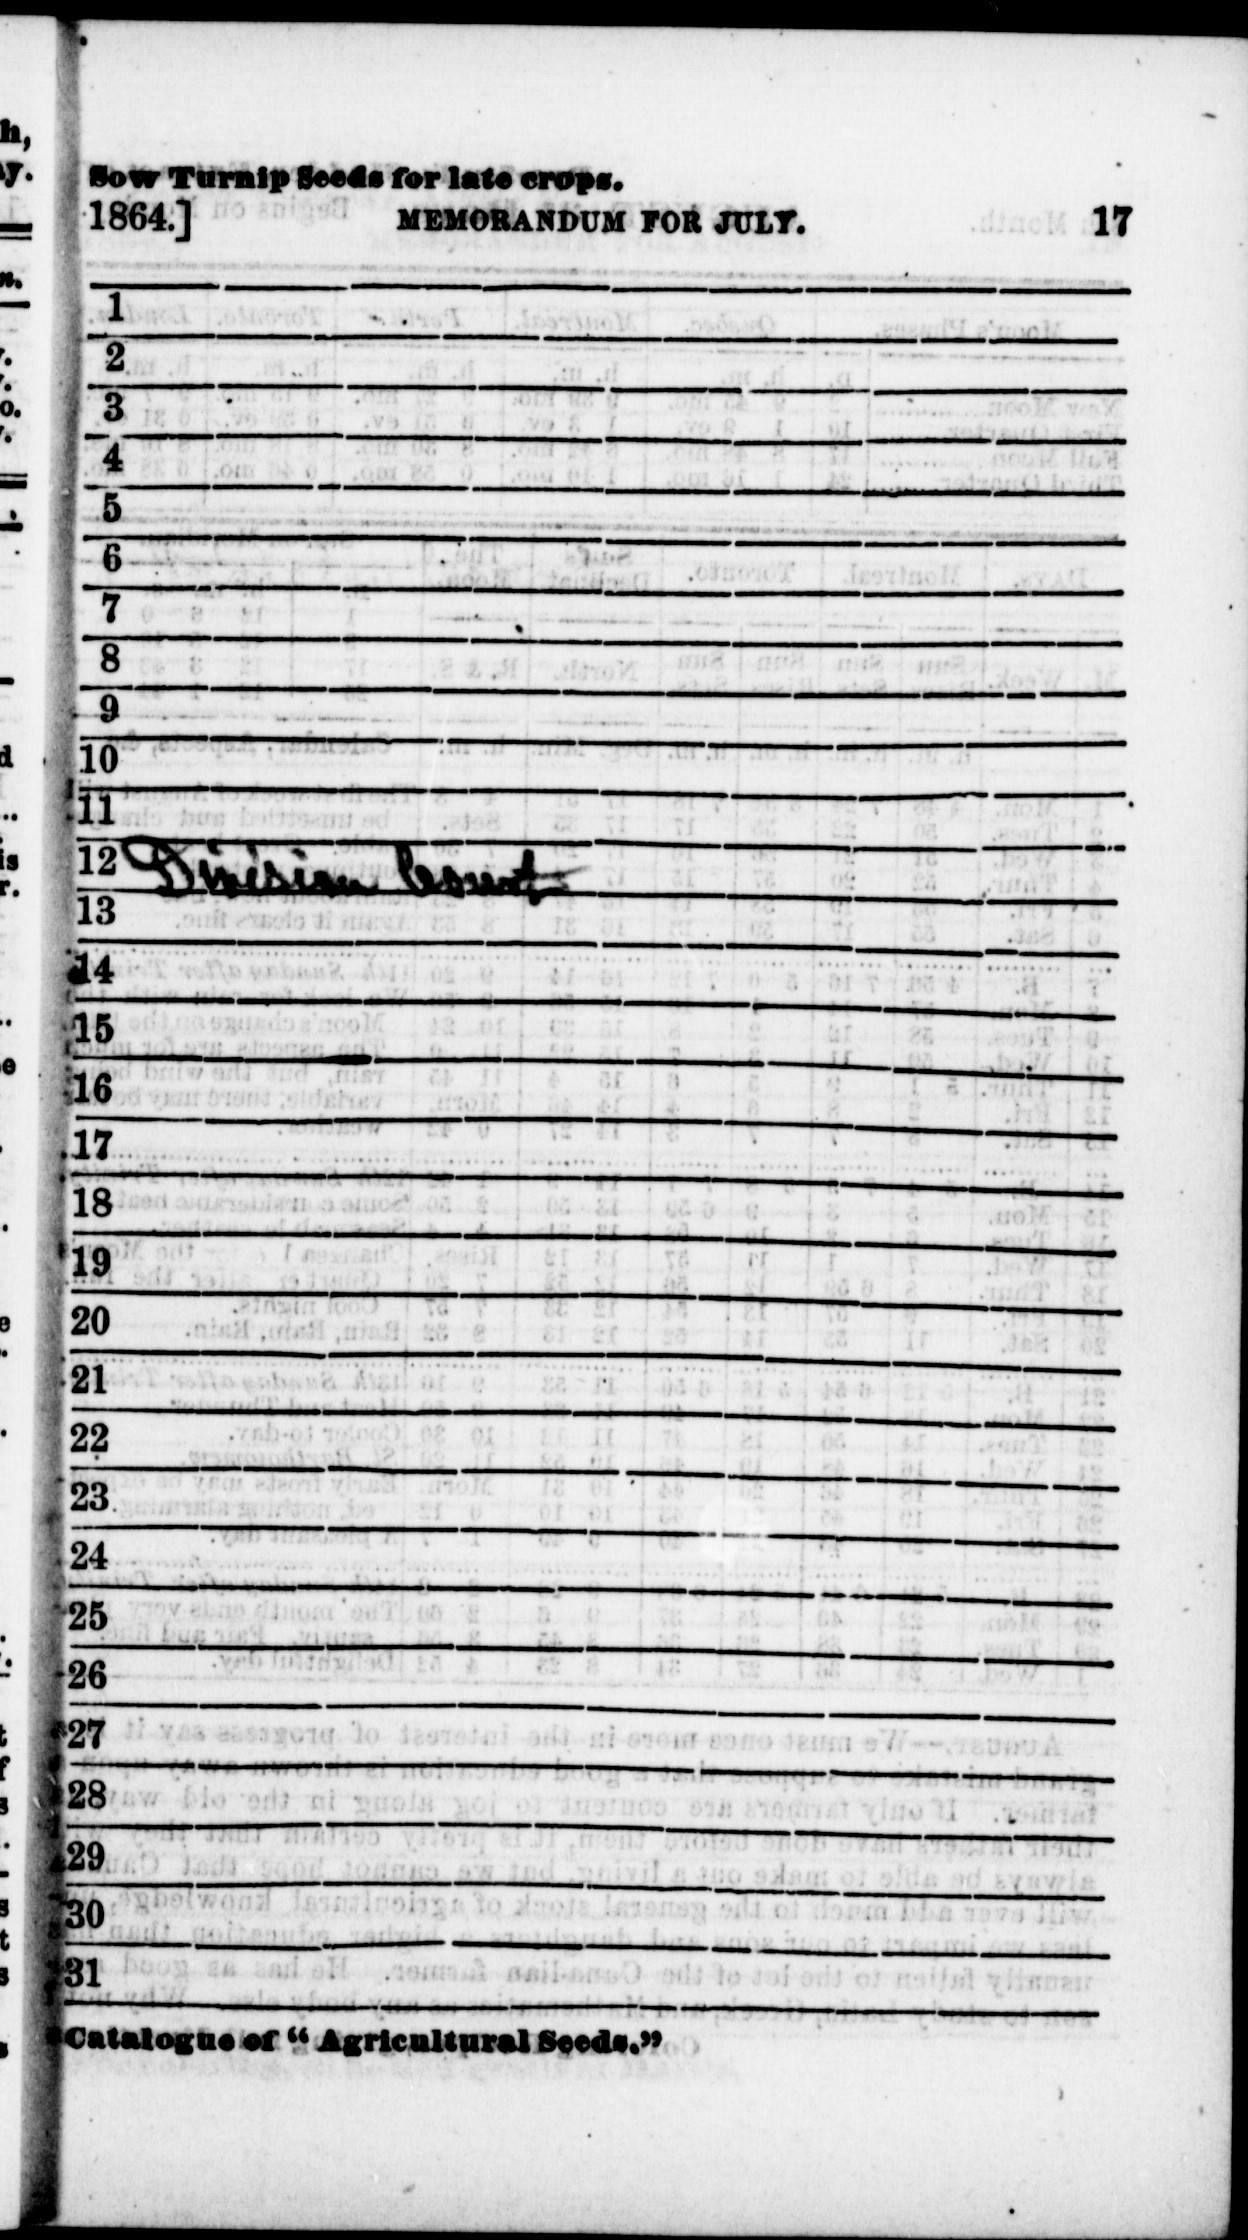 Sow Turnip Seeds for late crops.
1864.] MEMORANDUM FOR JULY. 17
1
2
3
4
5
6
7
8
9
10
11
12 Division Court
13
14
15
16
17
18
19
20
21
22
23
24
25
26
27
28
29
30
31
Catalogue of “ Agricultural Seeds.”